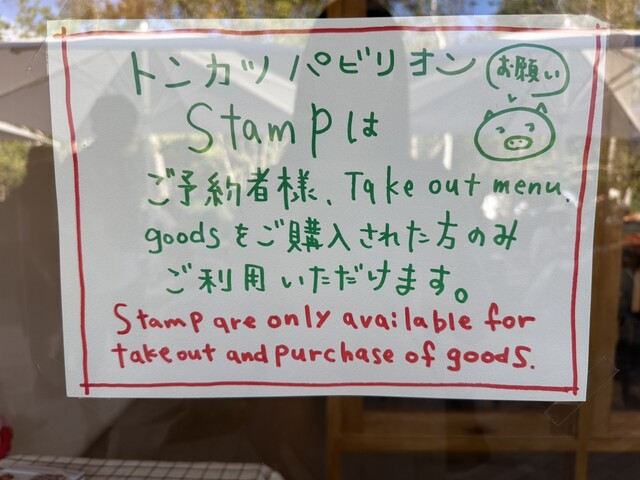 トンカツパビリオン
お願い
Stampは
ご予約者様、Take out menu、
goodsをご購入された方のみ
ご利用いただけます。
Stamp are only available for
takeout and purchase of goods.